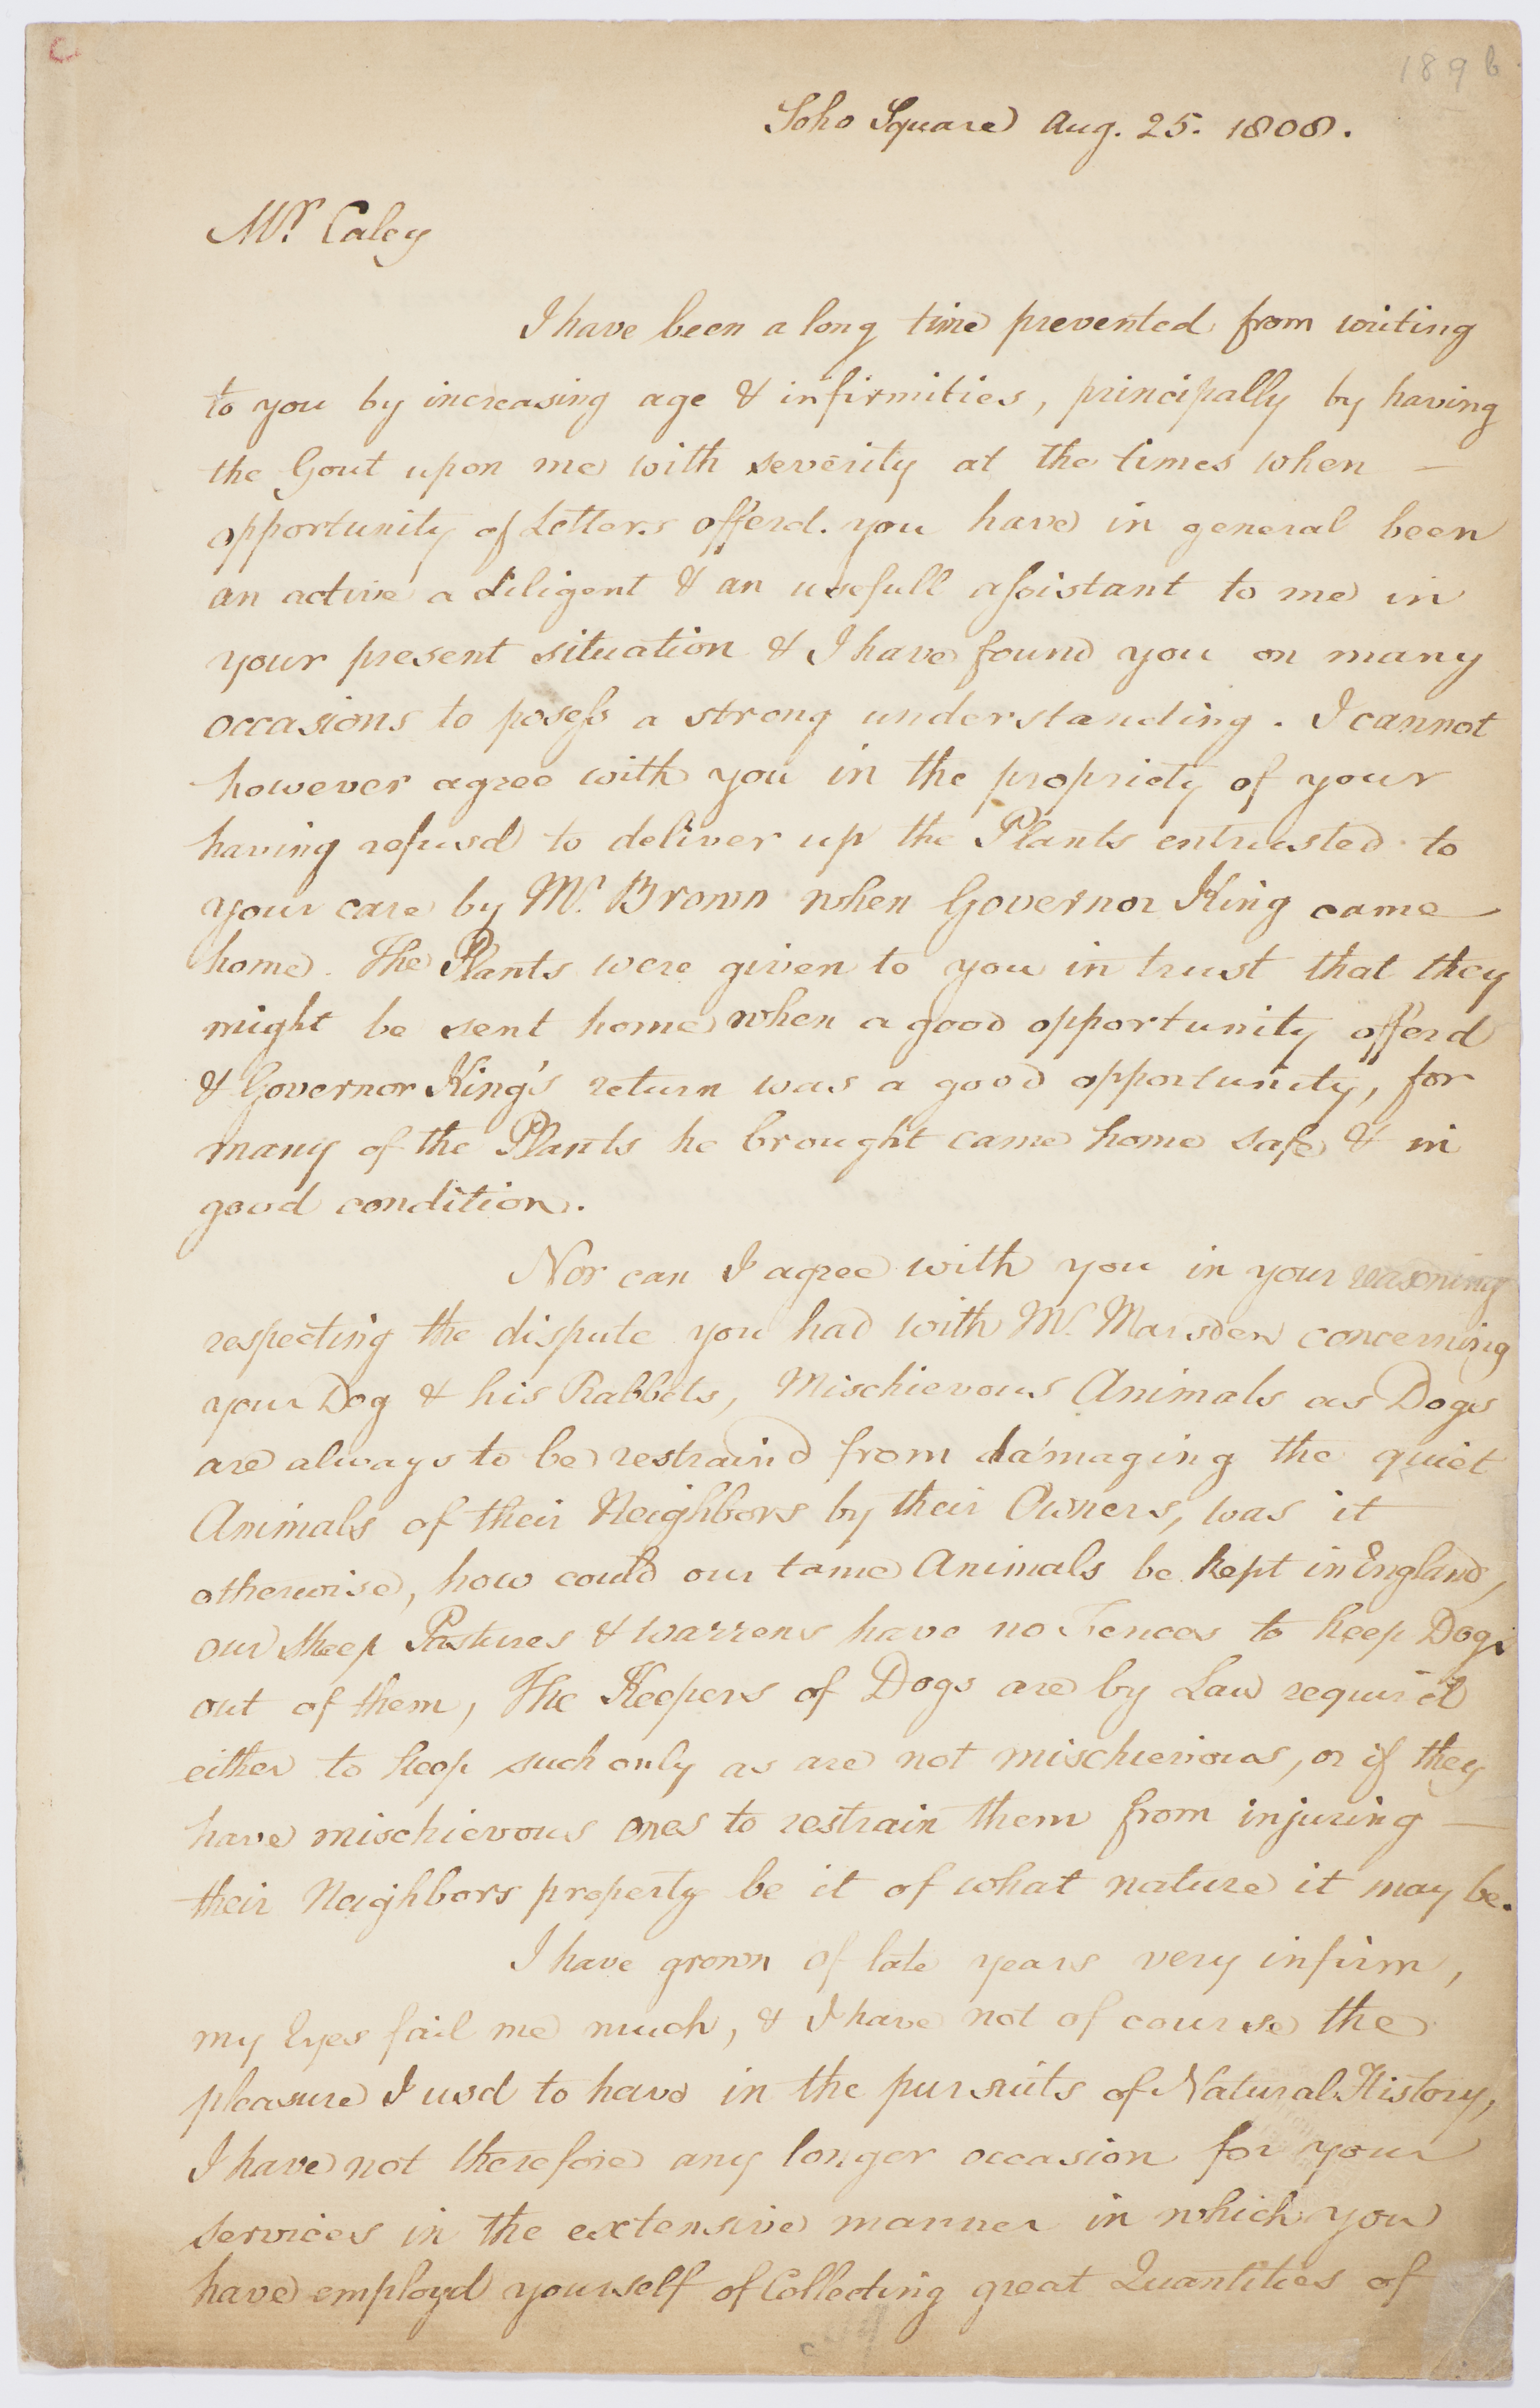 189 b
Soho Square Aug. 25. 1808.
Mr. Caley
I have been a long time prevented from writing
to you by increasing age & infirmities, principally by having
the Gout upon me with severity at the times when —
opportunity of Letters offerd. you have in general been
an active a diligent & an usefull assistant to me in
your present situation & I have found you on many
occasions to posess a strong understanding. I cannot
however agree with you in the propriety of your
having refusd to deliver up the Plants entrusted to
your care by Mr. Brown when Governor King came
home. The Plants were given to you in trust that they
might be sent home when a good opportunity offerd
& Governor King's return was a good opportunity, for
many of the Plants he brought came home safe & in
good condition.
Nor can I agree with you in your reasoning
respecting the dispute you had with Mr. Marsden concerning
your Dog & his Rabbets, Mischievous Animals as Dogs
are always to be restraind from damaging the quiet
Animals of their Neighbors by their Owners, was it
otherwise, how could our tame Animals be kept in England,
our Sheep Pastures & Warrens have no Fences to keep Dogs
out of them, The Keepers of Dogs are by Law requir'd
either to keep such only as are not mischievous, or if they
have mischievous ones to restrain them from injuring —
their Neighbors property be it of what nature it may be.
I have grown of late years very infirm,
my Eyes fail me much, & I have not of course the
pleasure I usd to have in the pursuits of Natural History,
I have not therefore any longer occasion for your
services in the extensive manner in which you
have employd yourself of Collecting great Quantities of